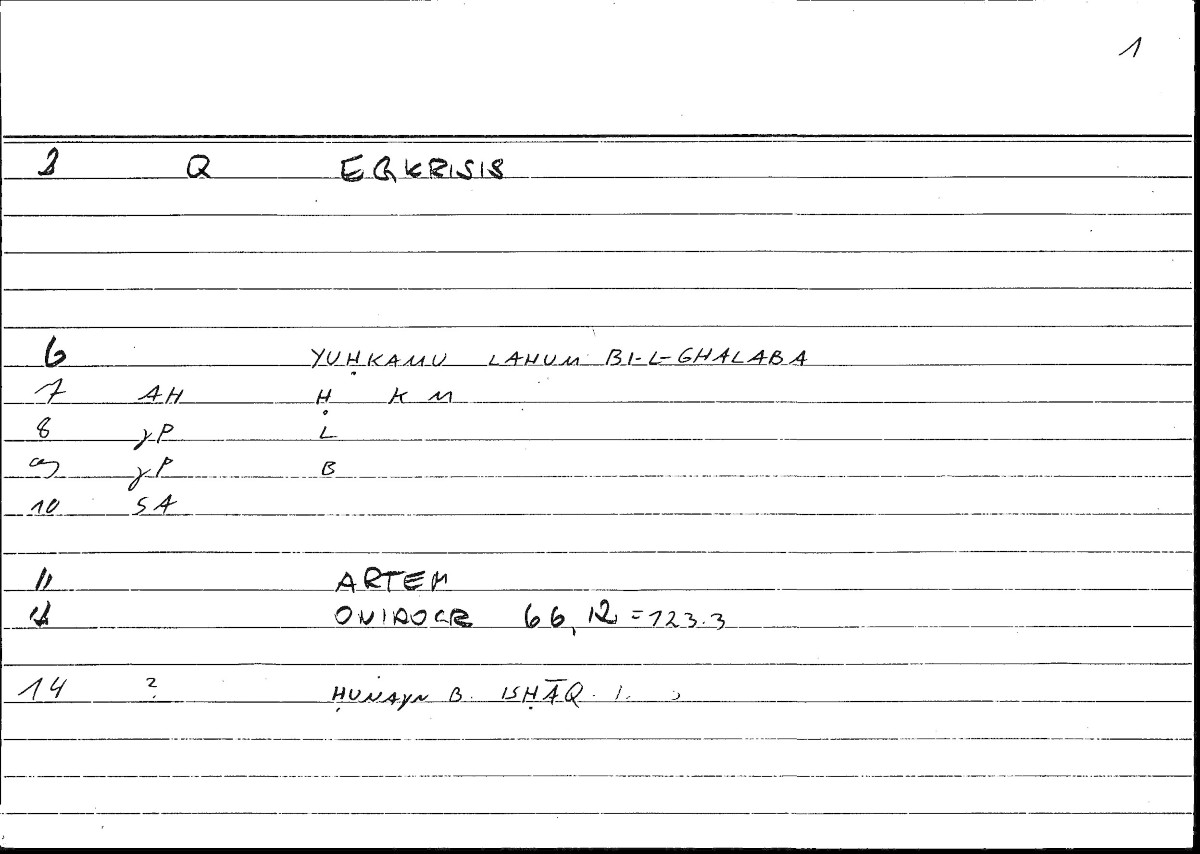 1
3 Q EGKRISIS
6 YUḤKAMU LAHUM BI-L-GHALABA
7 AH Ḥ K M
8 γP L
9 γP B
10 SA
11 ARTEM
12 ONIROCR 66,12=123.3
14 ? ḤUNAYN B. ISḤĀQ